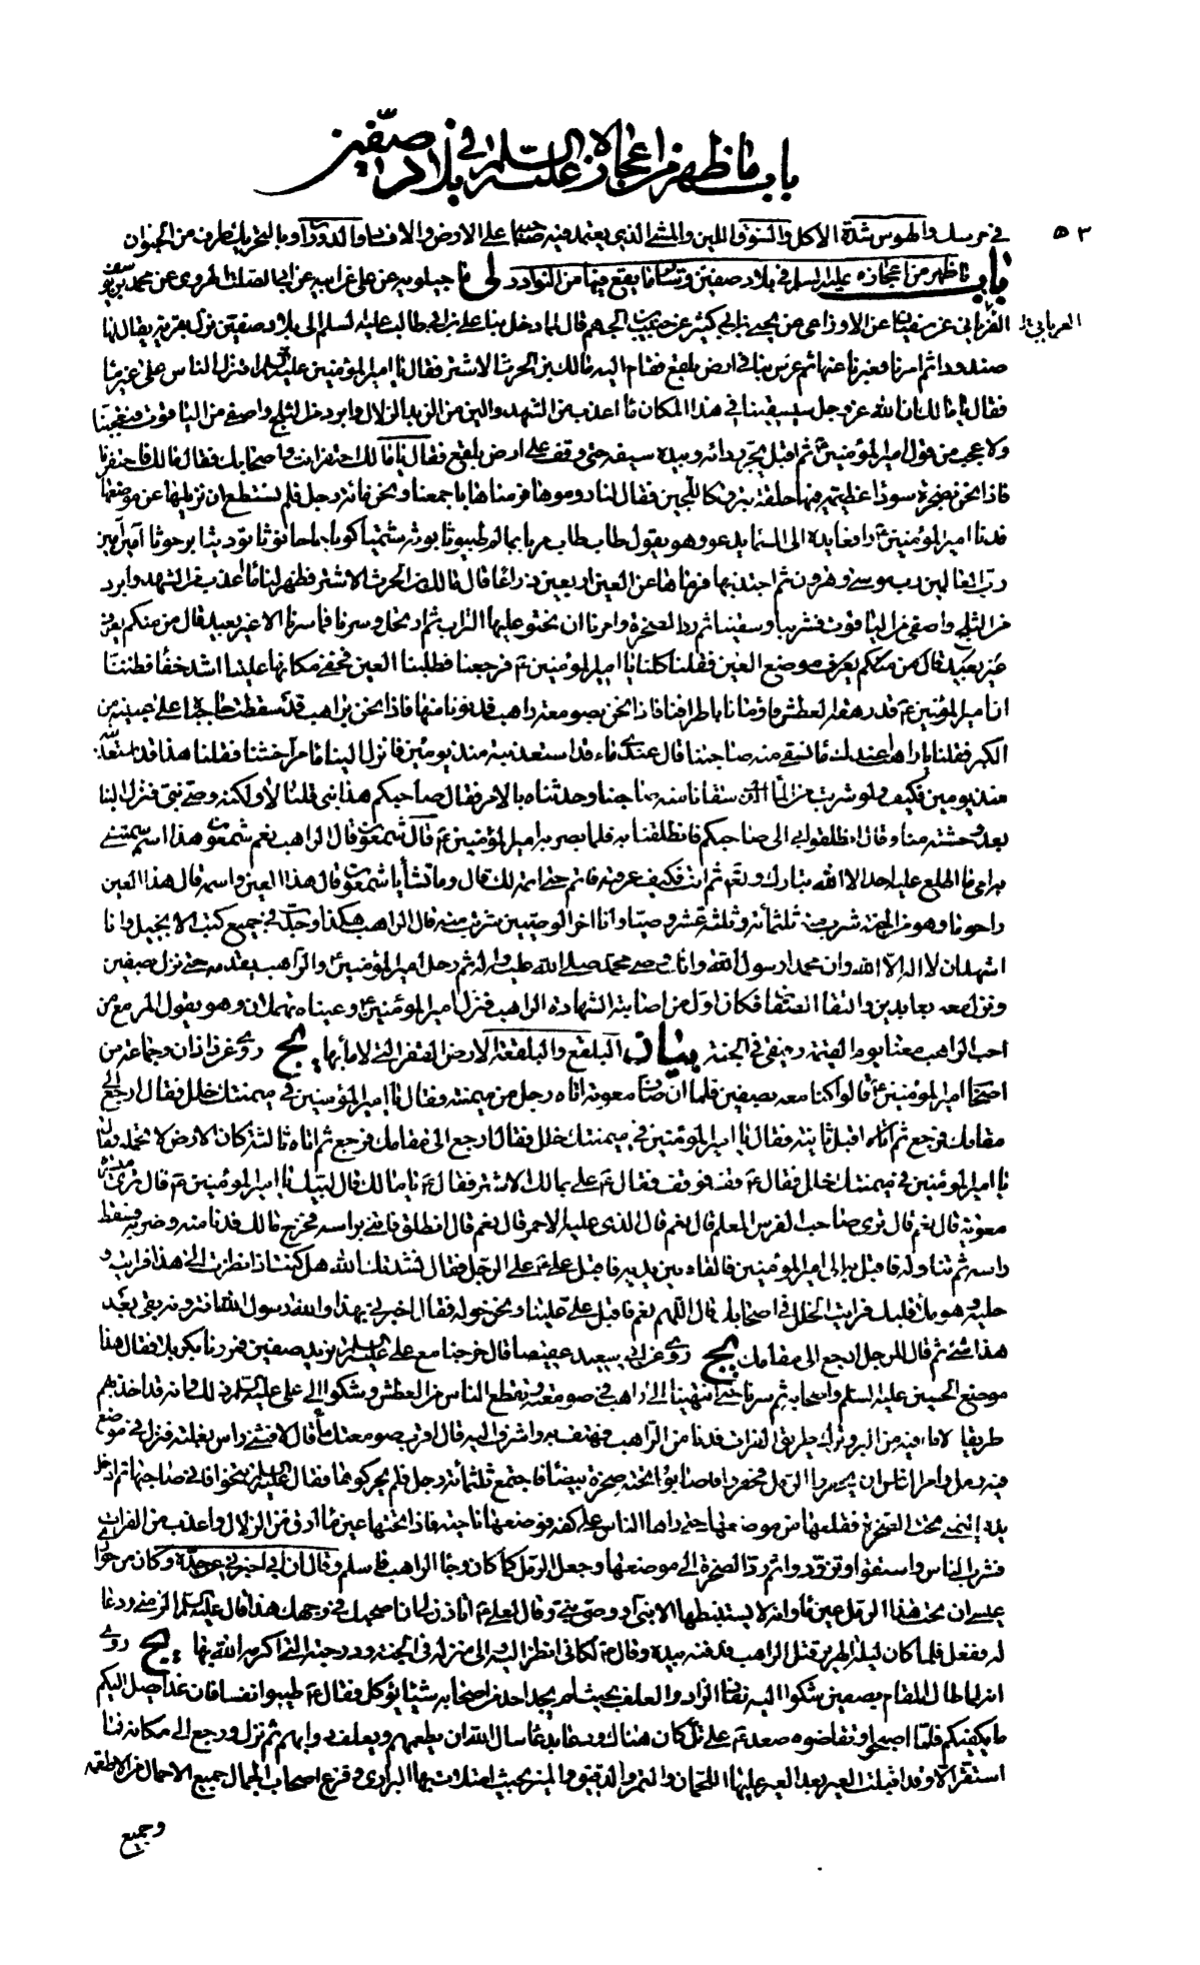 باب ما ظهر من اعجازه عليه السلام في بلاد صفين
٥٣
في حرسك والهوس شدة الاكل والسوق اللين والمشي الذي يعتمد فيه صاحبه على الارض والافساد والدوران او بالتحريك طرف من الجنون
باب ما ظهر من اعجازه عليه السلام في بلاد صفين وسائر ما يقع فيها من النوادر لى ماجيلويه عن علي عن ابيه عن ابي الصلت الهروي عن محمد بن يوسف
الفريابي عن سفيان عن الاوزاعي عن يحيى بن ابي كثير عن حبيب بن الجهم قال لما دخل بنا علي بن ابي طالب عليه السلام الى بلاد صفين نزل بقرية يقال لها
صندودا ثم امرنا فعبرنا عنها ثم عرس بنا في ارض بلقع فقام اليه مالك بن الحرث الاشتر فقال يا امير المؤمنين اتنزل الناس على غير ماء
فقال يا مالك ان الله عز وجل سيسقينا في هذا المكان ماء اعذب من الشهد والين من الزبد الزلال وابرد من الثلج واصفى من الياقوت فتعجبنا
ولا عجب من قول امير المؤمنين ع ثم اقبل يجر ردائه وبيده سيفه حتى وقف على ارض بلقع فقال يا مالك احتفر انت واصحابك فقال مالك فاحتفرنا
فاذا نحن بصخرة سوداء عظيمة فيها حلقة تبرق كاللجين فقال لنا روموها فرمناها باجمعنا ونحن مائة رجل فلم نستطع ان نزيلها عن موضعها
فدنا امير المؤمنين ع رافعا يده الى السماء يدعو وهو يقول طاب طاب مريا بما لم طيبوثا بوثة شتميا كوبا جاحا نوثا توديثا برحوثا آمين آمين
رب العالمين رب موسى وهرون ثم اجتذبها فرماها عن العين اربعين ذراعا قال مالك بن الحرث الاشتر فظهر لنا ماء اعذب من الشهد وابرد
من الثلج واصفى من الياقوت فشربنا وسقينا ثم رد الصخرة وامرنا ان نحثو عليها التراب ثم ارتحل وسرنا فما سرنا الا غير بعيد قال من منكم يعرف
غير بعيد قال من منكم يعرف موضع العين فقلنا كلنا يا امير المؤمنين ع فرجعنا فطلبنا العين فخفي مكانها علينا اشد خفاء فظننا
ان امير المؤمنين ع قد رهقه العطش فاومانا باطرافنا فاذا نحن بصومعة راهب فدنونا منها فاذا نحن براهب قد سقطت حاجباه على عينيه من
الكبر فقلنا يا راهب عندك ماء نسقي منه صاحبنا قال عندي ماء قد استعذبته منذ يومين فانزل الينا ماء مرا خشنا فقلنا هذا قد استعذبته
منذ يومين فكيف ولو شربت من الماء الذي سقانا منه صاحبنا وحدثناه بالامر فقال صاحبكم هذا نبي قلنا لا ولكنه وصي نبي فنزل الينا
بعد وحشته منا وقال انطلقوا بي الى صاحبكم فانطلقنا به فلما بصر به امير المؤمنين ع قال شمعون قال الراهب نعم شمعون هذا اسم سمتني
به امي ما اطلع عليه احد الا الله تبارك وتعالى ثم انت فكيف عرفته فاتم حتى اتمه لك قال وما تشاء يا شمعون قال هذا العين واسمه قال هذا العين
راحوما وهو من الجنة شرب منه ثلثمائة وثلثة عشر وصيا وانا اخر الوصيين شربت منه قال الراهب هكذا وجدت في جميع كتب الانجيل وانا
اشهد ان لا اله الا الله وان محمدا رسول الله وانك وصي محمد صلى الله عليه واله ثم رحل امير المؤمنين ع والراهب يقدمه حتى نزل صفين
ونزل معه بعابدين والتقا الصفان فكان اول من اصابته الشهادة الراهب فنزل امير المؤمنين ع وعيناه تهملان وهو يقول المرء مع من
احب الراهب معنا يوم القيمة ورفيقي في الجنة بيان البلقع والبلقعة الارض القفر التي لا ماء بها يج روي عن زاذان وجماعة من
اصحاب امير المؤمنين ع قالوا كنا معه بصفين فلما ان صاف معوية اتاه رجل من ميمنته فقال يا امير المؤمنين في ميمنتك خلل فقال ارجع الى
مقامك فرجع ثم اتاه اقبل ثانية فقال يا امير المؤمنين في ميمنتك خلل فقال ارجع الى مقامك فرجع ثم اتاه ثالثة كان الارض لا تحمله فقال
يا امير المؤمنين في ميمنتك خلل فقال ع قف فوقف فقال ع علي بمالك الاشتر فقال ع يا مالك قال لبيك يا امير المؤمنين ع قال ترى ميسرة
معوية قال نعم قال ترى صاحب الفرس المعلم قال نعم قال الذي عليه الاحمر قال نعم قال انطلق فاتني براسه فخرج مالك فدنا منه وضربه فسقط
راسه ثم تناوله فاقبل به الى امير المؤمنين فالقاه بين يديه فاقبل علي ع على الرجل فقال نشدتك الله هل كنت اذا نظرت الى هذا فرايت و
حليه وهو ملأ قلبك فرايت الخلل في اصحابك قال اللهم نعم فاقبل علي علينا ونحن حوله فقال اخبرني بهذا والله رسول الله افترونه بقي بعد
هذا شئ ثم قال للرجل ارجع الى مقامك يج روي عن ابي سعيد عقيصا قال خرجنا مع علي عليه السلام نريد صفين فمررنا بكربلا فقال هذا
موضع الحسين عليه السلام واصحابه ثم سرنا حتى انتهينا الى راهب في صومعة وتقطع الناس من العطش وشكوا الى علي عليه السلم ذلك فانه قد اخذ بهم
طريقا لا ماء فيه من البر وترك طريق الفرات فدنا من الراهب فهتف به واشرف اليه قال اقرب صومعتك ماء قال لا فثنى راس بغلته فنزل في موضع
فيه رمل وامر الناس ان يحفروا الرمل فحفروا فاصابوا تحته صخرة بيضاء فاجتمع ثلثمائة رجل فلم يحركوها فقال عليه السلم تنحوا فاني صاحبها ثم ادخل
يده اليمنى تحت الصخرة فقلعها من موضعها حتى راها الناس على كفه فوضعها ناحية فاذا تحتها عين ماء ارق من الزلال واعذب من الفرات
فشرب الناس واستقوا وتزودوا ثم رد الصخرة الى موضعها وجعل الرمل كما كان وجاء الراهب فاسلم وقال ان ابي اخبرني عن جده وكان من حواري
عيسى ان تحت هذا الرمل عين ماء وانه لا يستنبطها الا نبي او وصي نبي وقال لعلي ع اتاذن لي ان اصحبك في وجهك هذا قال عليه السلم الزمني ودعا
له ففعل فلما كان ليلة الهرير قتل الراهب فدفنه بيده وقال ع لكاني انظر اليه والى منزله في الجنة ودرجته التي اكرمه الله بها يج روي
انه لما طال المقام بصفين شكوا اليه نفاد الزاد والعلف بحيث لم يجد احد من اصحابه شيئا يؤكل فقال ع طيبوا نفسا فان غدا يصل اليكم
ما يكفيكم فلما اصبحوا وتقاضوه صعد ع على تل كان هناك ودعا بدعاء سال الله ان يطعمهم ويعلف دوابهم ثم نزل ورجع الى مكانه فما
استقر الا وقد اقبلت العير بعد العير عليها اللحمان والتمر والدقيق والميرة بحيث امتلات بها البراري وفرغ اصحاب الجمال جميع الاحمال من الاطعمة
وجميع